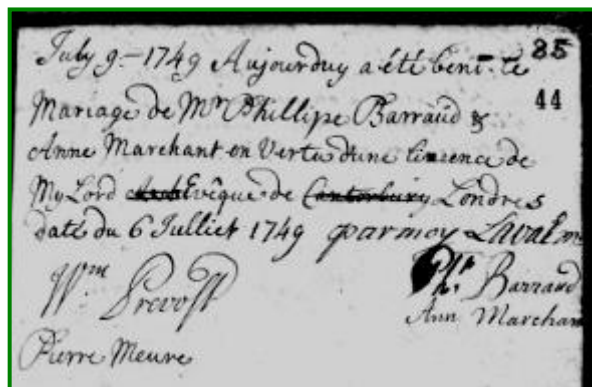 July 9 - 1749 Aujourduy a été beni le 85
44
Mariage de Mr Phillipe Barraud &
Anne Marchant en Vertu dune lisence de
My Lord Arch Evêque de Cantorbury Londres
daté du 6 Julliet 1749 par moy Laval
Wm Prevost
Ph. Barraud
Ann Marchan
Pierre Meure